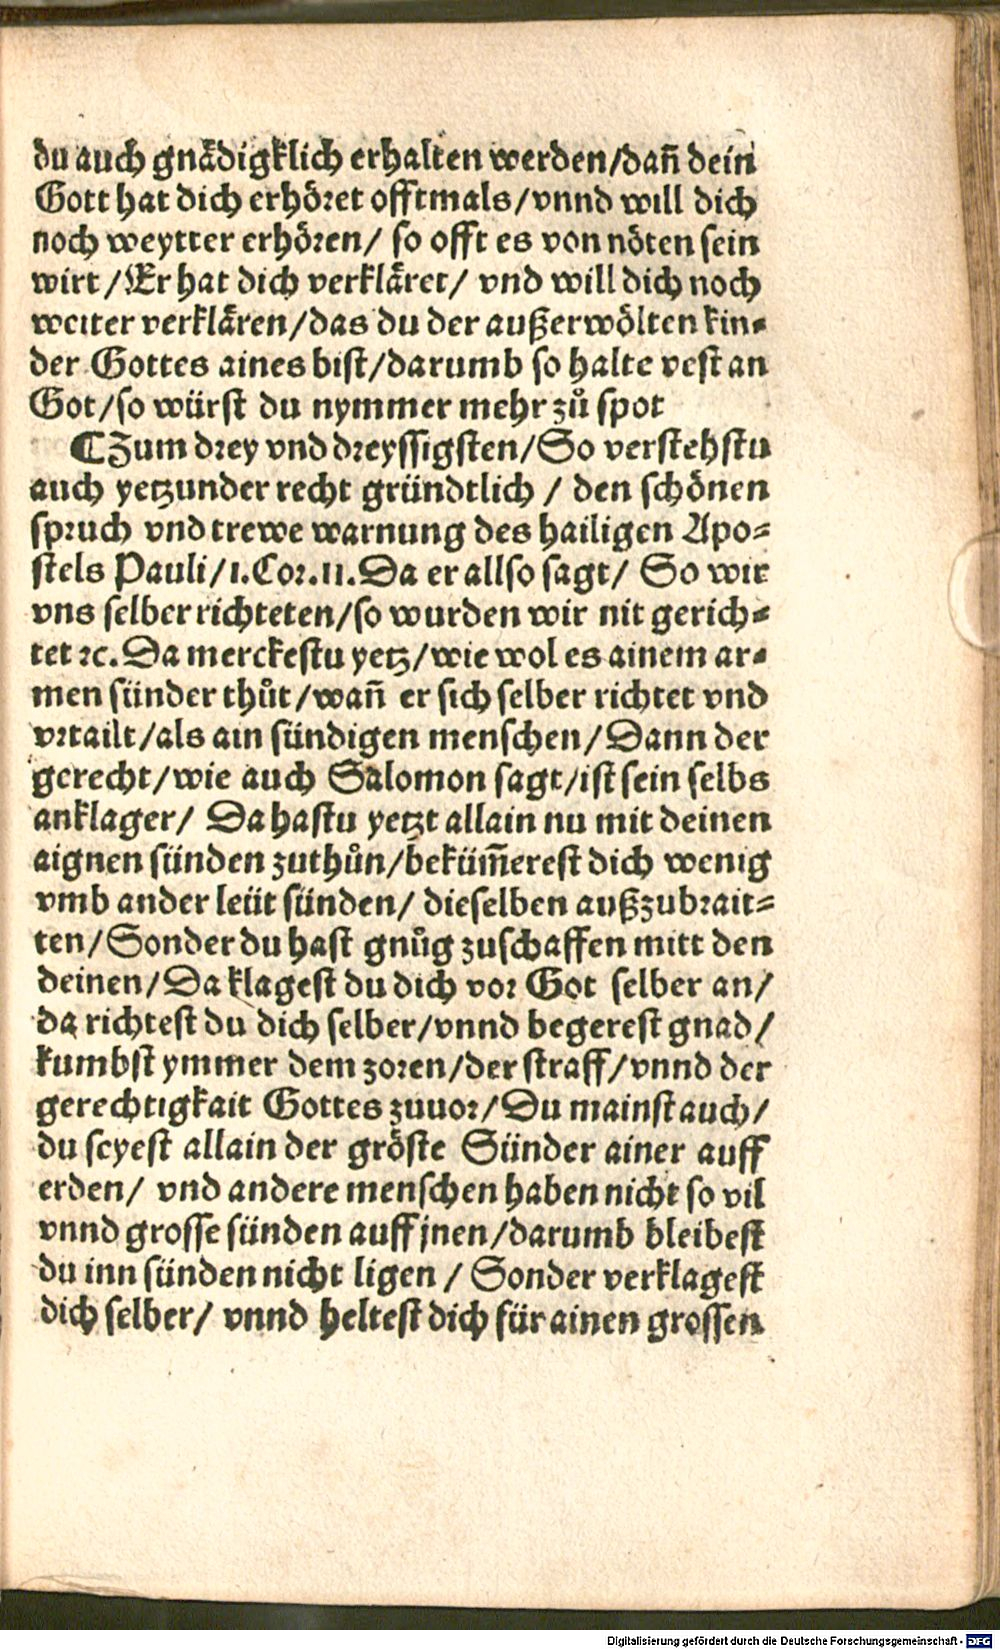 du auch gnädigklich erhalten werden/dañ dein
Gott hat dich erhöꝛet offtmals/vnnd will dich
noch weytter erhöꝛen/ so offt es von nöten sein
wirt/Er hat dich verkläret/ vnd will dich noch
weiter verklären/das du der außerwölten kin⸗
der Gottes aines bist/darumb so halte vest an
Got/so würst du nymmer mehr zů spot
¶Zum dꝛey vnd dꝛeyssigsten/So verstehstu
auch yetzunder recht gründtlich / den schönen
spꝛuch vnd trewe warnung des hailigen Apo⸗
stels Pauli/1.Coꝛ.11.Da er allso sagt/ So wir
vns selber richteten/so wurden wir nit gerich⸗
tet ꝛc.Da merckestu yetz/wie wol es ainem ar⸗
men sünder thůt/wañ er sich selber richtet vnd
vꝛtailt/als ain sündigen menschen/Dann der
gerecht/wie auch Salomon sagt/ist sein selbs
anklager/ Da hastu yetzt allain nu mit deinen
aignen sünden zuthůn/beküm̃erest dich wenig
vmb ander leüt sünden/ dieselben außzubꝛait⸗
ten/Sonder du hast gnůg zuschaffen mitt den
deinen/Da klagest du dich voꝛ Got selber an/
da richtest du dich selber/vnnd begerest gnad/
kumbst ymmer dem zoꝛen/der straff/vnnd der
gerechtigkait Gottes zuuoꝛ/Du mainst auch/
du seyest allain der gröste Sünder ainer auff
erden/ vnd andere menschen haben nicht so vil
vnnd grosse sünden auff jnen/darumb bleibest
du inn sünden nicht ligen / Sonder verklagest
dich selber/ vnnd heltest dich für ainen grossen
Digitalisierung gefördert durch die Deutsche Forschungsgemeinschaft - DFG